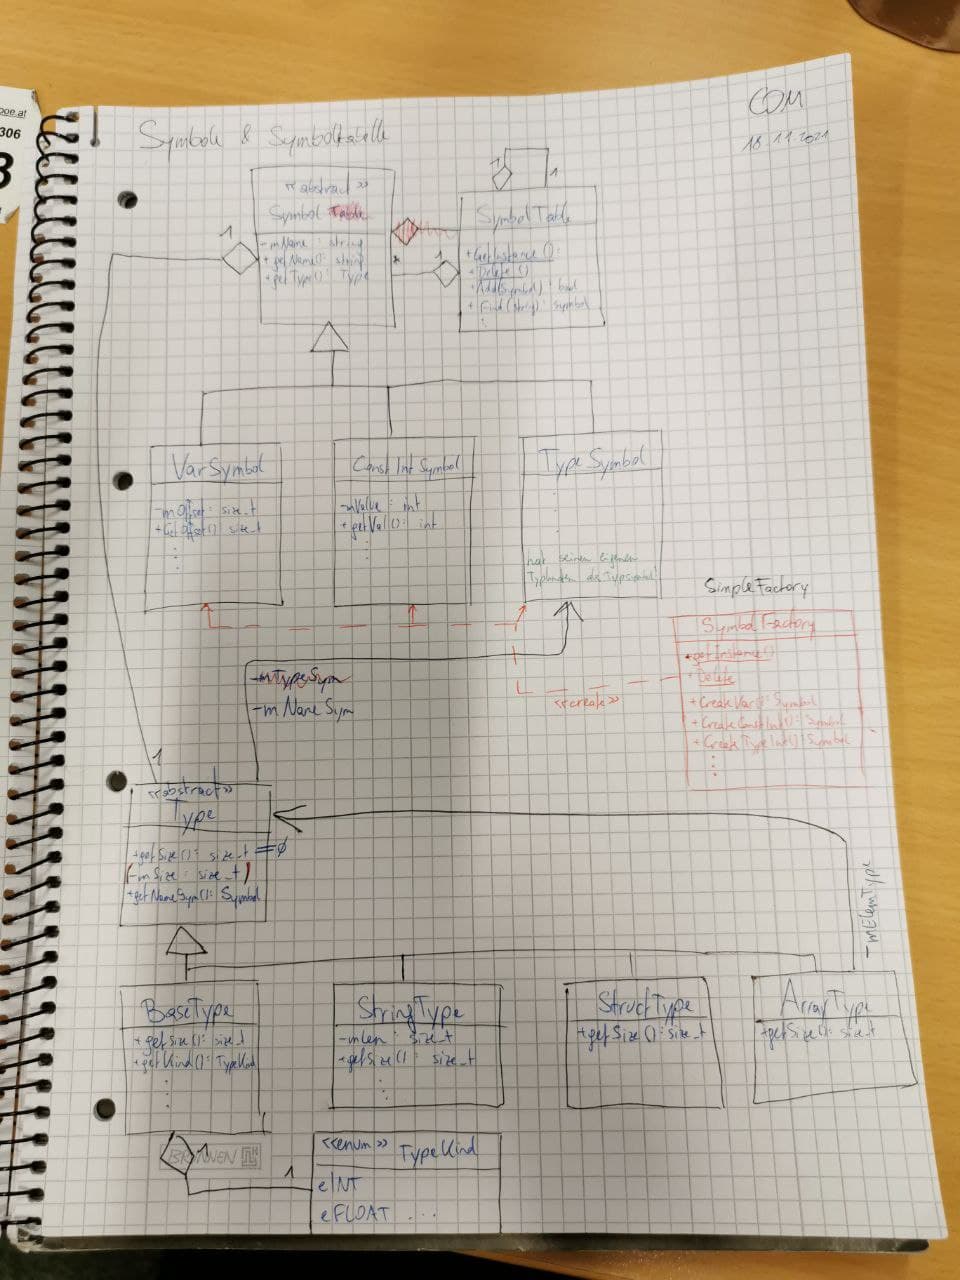 poe.at
306
COM
18.11.2021
Symbole & Symboltabelle
1
<<abstract>>
Symbol Table
- mName : string
+ getName(): string
+ getType(): Type
1
1
SymbolTable
+ GetInstance():
+ Delete()
+ Add(Symbol) : bool
+ Find(string): symbol
*
1
VarSymbol
- mOffset: size_t
+ GetOffset() size_t
ConstIntSymbol
- mValue : int
+ getVal(): int
TypeSymbol
hat seinen eigenen
SimpleFactory
SymbolFactory
+ getInstance()
+ Delete
+ CreateVar(): Symbol
+ CreateConstInt(): Symbol
+ CreateTypeInt(): Symbol
<<create>>
- mTypeSym
- mNameSym
1
<<abstract>>
Type
+ getSize(): size_t = ∅
(- mSize : size_t)
+ getNameSym(): Symbol
- mElemType
BaseType
+ getSize(): size_t
+ getKind(): TypeKind
StringType
- mLen : size_t
+ getSize(): size_t
StructType
+ getSize(): size_t
ArrayType
+ getSize(): size_t
1
BRUNNEN
1
<<enum>> TypeKind
eINT
eFLOAT ...